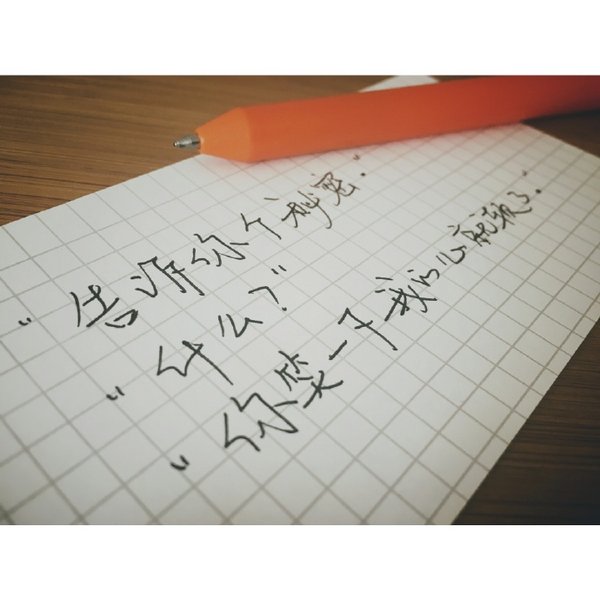 “告诉你个秘密.”
“什么?”
“你笑一下我的心就软了.”